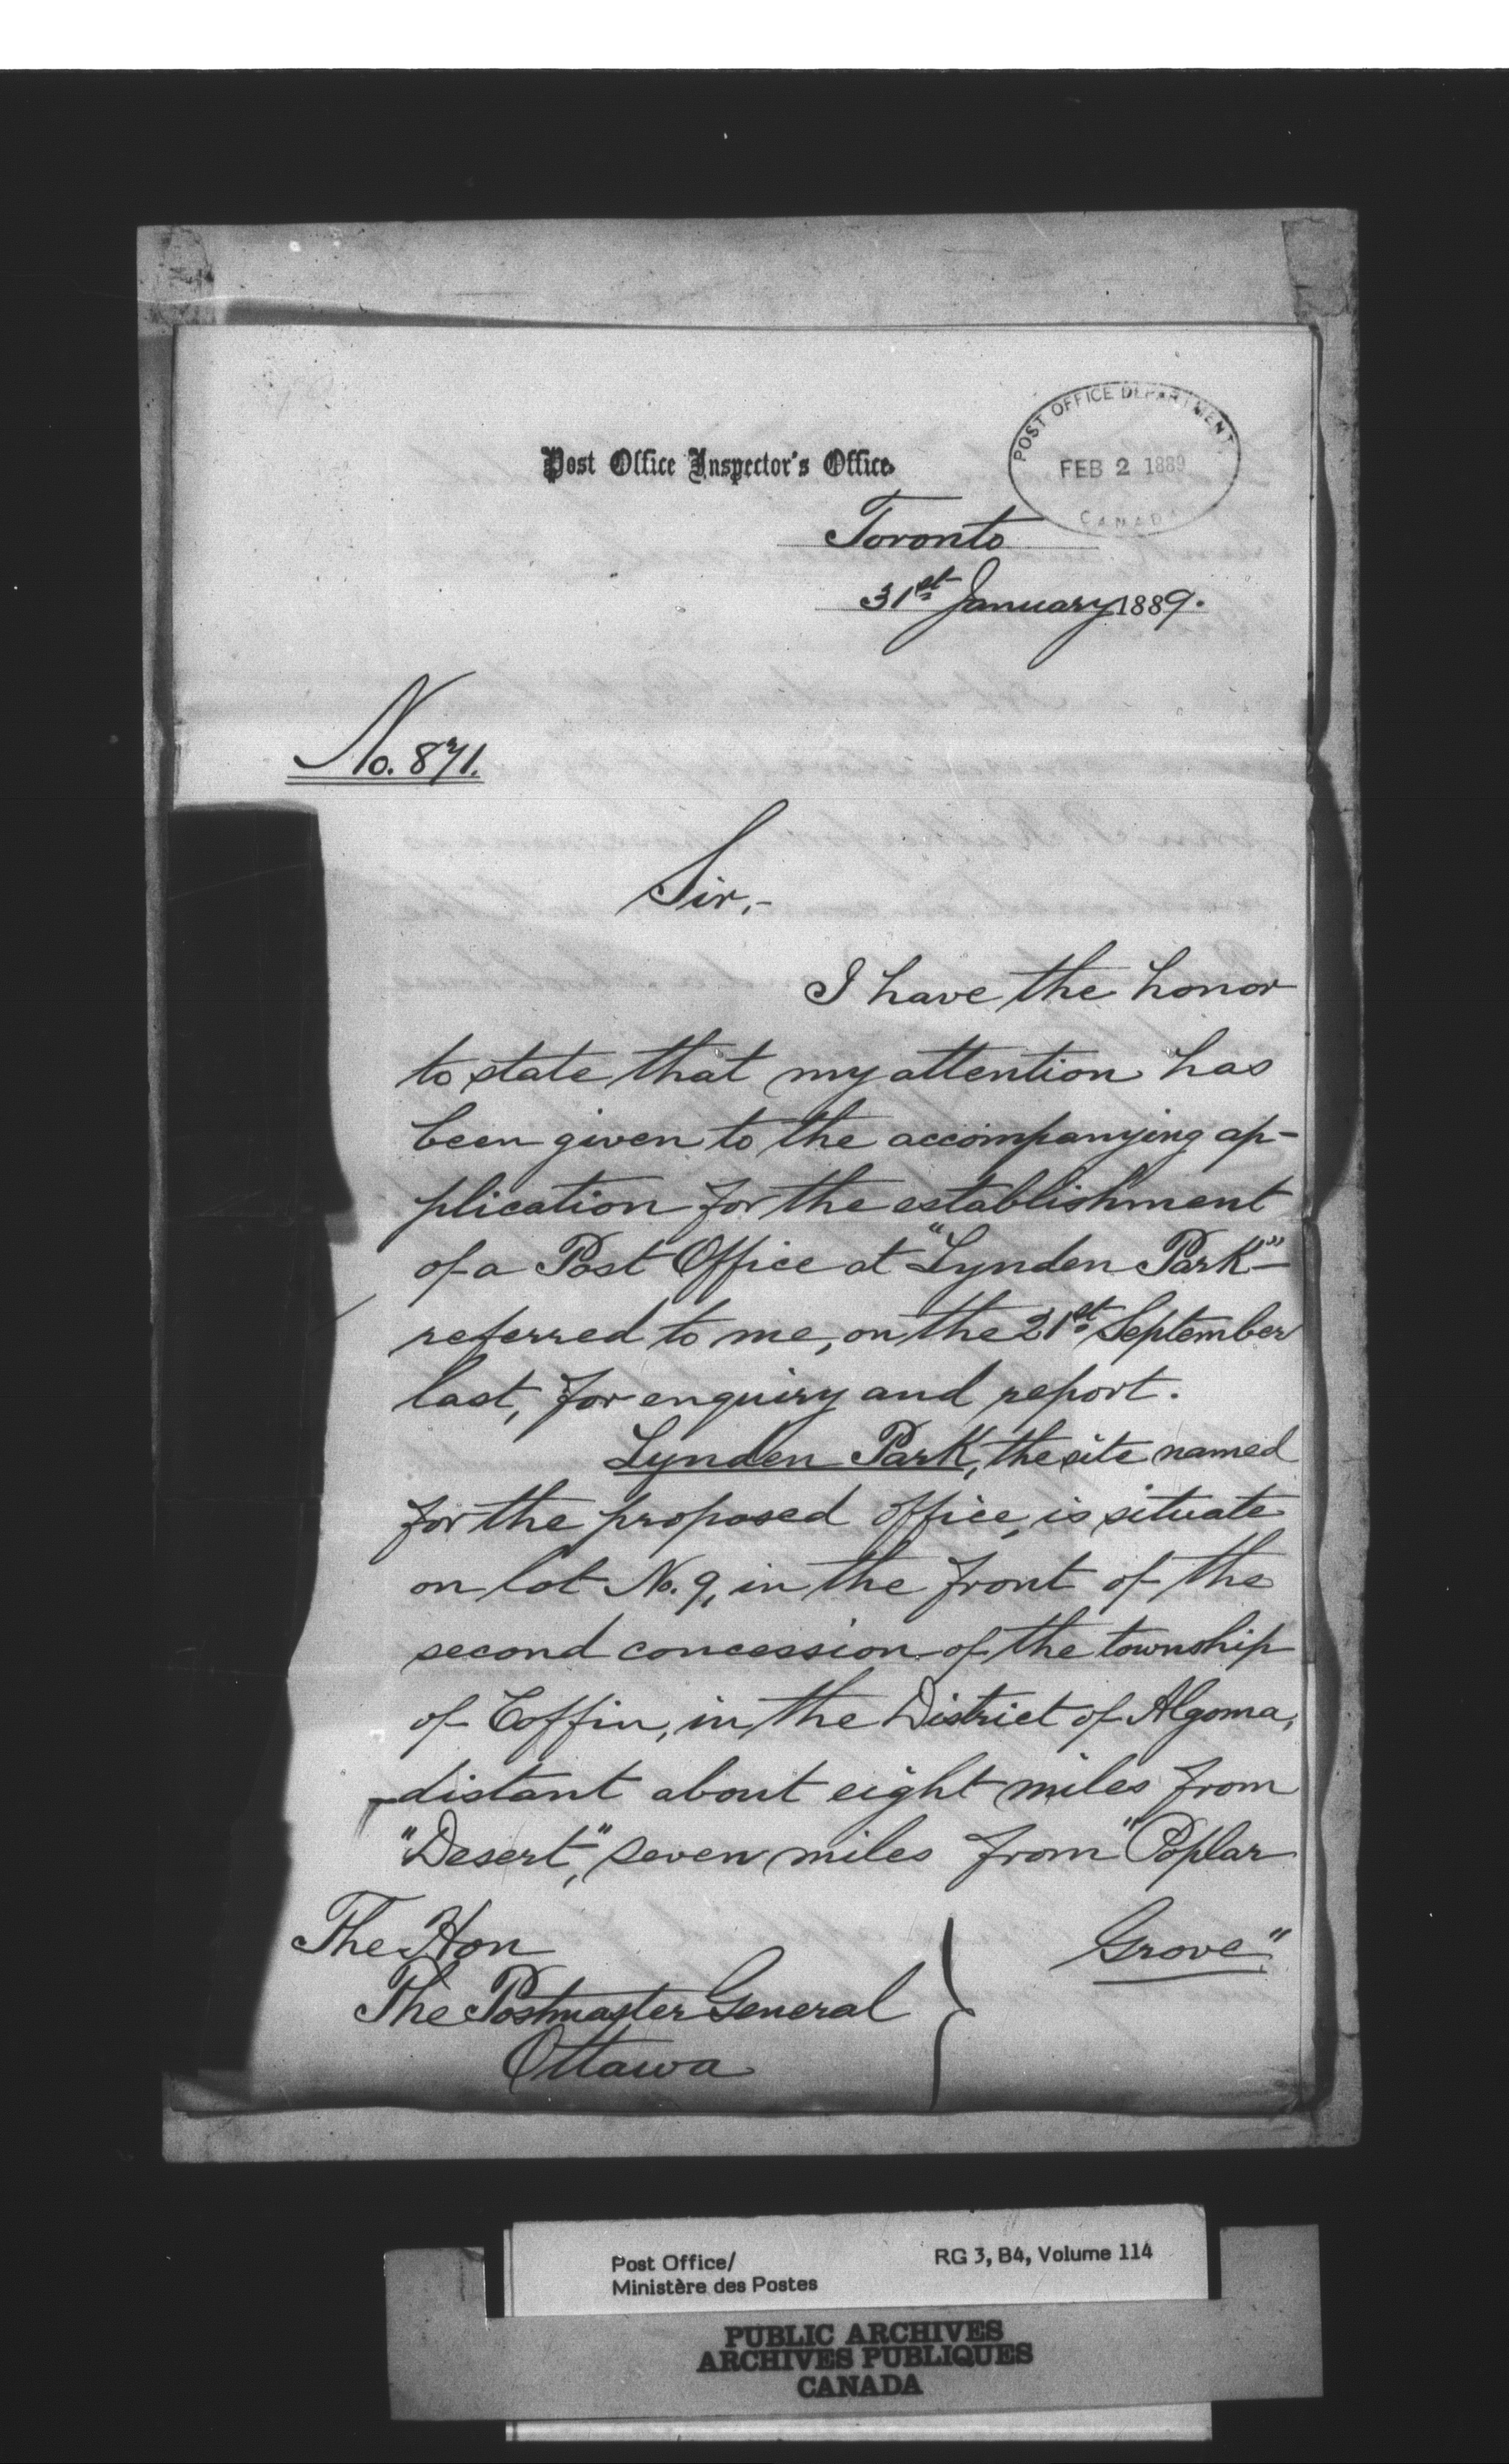 Post Office Inspector's Office.
POST OFFICE DEPARTMENT
FEB 2 1889
CANADA
Toronto
31st January 1889.
No. 871.
Sir,-
I have the honor
to state that my attention has
been given to the accompanying ap-
plication for the establishment
of a Post Office at "Lynden Park"-
referred to me, on the 21st September
last, for enquiry and report.
Lynden Park, the site named
for the proposed office, is situate
on lot No. 9, in the front of the
second concession of the township
of Coffin, in the District of Algoma,
distant about eight miles from
"Desert", seven miles from "Poplar
Grove".
The Hon
The Postmaster General
Ottawa
Post Office/
Ministère des Postes
RG 3, B4, Volume 114
PUBLIC ARCHIVES
ARCHIVES PUBLIQUES
CANADA